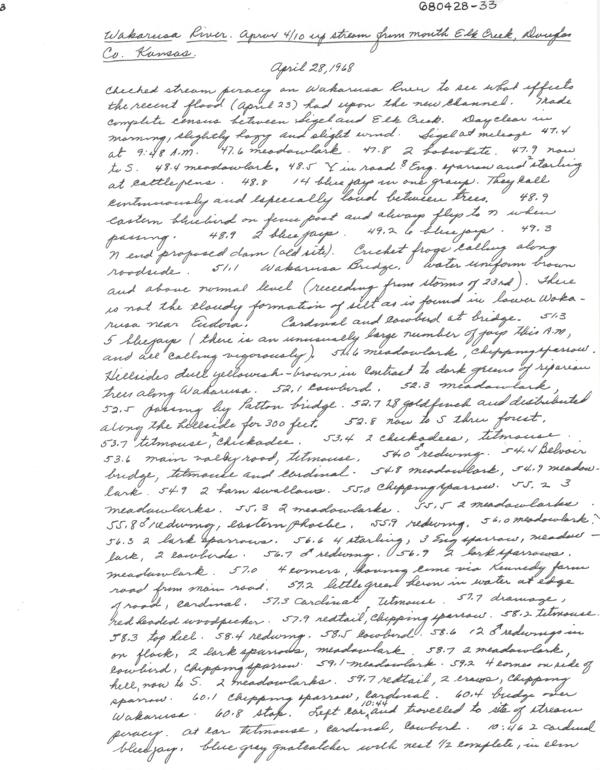 G80428-33
Wakarusa River. Aprox 4/10 up stream from mouth Elk Creek, Douglas
Co. Kansas.
April 28, 1968
Checked stream piracy on Wakarusa River to see what effects
the recent flood (April 23) had upon the new channel. Made
complete census between Sigel and Elk Creek. Day clear in
morning, slightly hazy and slight wind. Sigel at mileage 47.4
at 9:48 A.M. 47.6 meadowlark. 47.8 2 bobwhite. 47.9 now
to S. 48.4 meadowlark, 48.5 Y in road 8 Eng. sparrow and 2 starling
at cattle pens. 48.8 14 blue jays in one group. They call
continuously and especially loud between trees. 48.9
Eastern bluebird on fence post and always flys to N when
passing. 48.9 2 blue jays. 49.2 6 blue jays. 49.3
N end proposed dam (old site). Cricket frogs calling along
roadside. 51.1 Wakarusa Bridge. Water uniform brown
and above normal level (receeding from storms of 23rd). There
is not the cloudy formation of silt as is found in lower Waka-
rusa near Eudora. Cardinal and cowbird at bridge. 51.3
5 bluejays (there is an unusually large number of jays this A.M,
and all calling vigorously). 51.6 meadowlark, chipping sparrow.
Hillsides dull yellowish-brown in contrast to dark greens of riparian
trees along Wakarusa. 52.1 cowbird. 52.3 meadowlark,
52.5 passing by Patton bridge. 52.7 28 goldfinch and distributed
along the hillside for 300 feet. 52.8 now to S thru forest,
53.7 titmouse, 2 chickadee. 53.4 2 chickadees, titmouse.
53.6 main valley road, titmouse. 54.0 ♂ redwing. 54.4 Belvoir
bridge, titmouse and cardinal. 54.8 meadowlark, 54.9 meadow-
lark. 54.9 2 barn swallows. 55.0 chipping sparrow. 55.2 3
meadowlarks. 55.3 2 meadowlarks. 55.5 2 meadowlarks.
55.8 ♂ redwing, eastern phoebe. 55.9 redwing. 56.0 meadowlark,
56.3 2 lark sparrows. 56.6 4 starling, 3 Eng sparrow, meadow-
lark, 2 cowbirds. 56.7 ♂ redwing. 56.9 2 lark sparrows.
meadowlark. 57.0 4 corners, having come via Kennedy farm
road from main road. 57.2 little green heron in water at edge
of road, cardinal. 57.3 cardinal, titmouse. 57.7 drainage,
red headed woodpecker. 57.9 redtail, chipping sparrow. 58.2 titmouse.
58.3 top hill. 58.4 redwing. 58.5 cowbird. 58.6 12 ♂ redwings in
on flock, 2 lark sparrows, meadowlark. 58.7 2 meadowlark,
cowbird, chipping sparrow. 59.1 meadowlark. 59.2 4 corners on side of
hill, now to S. 2 meadowlarks. 59.7 redtail, 2 crows, chipping
sparrow. 60.1 chipping sparrow, cardinal. 60.4 bridge over
Wakarusa. 60.8 stop. Left car 10:44 and travelled to site of stream
piracy. At car titmouse, cardinal, cowbird. 10:46 2 cardinal
bluejay, blue grey gnatcatcher with nest 1/2 complete, in elm